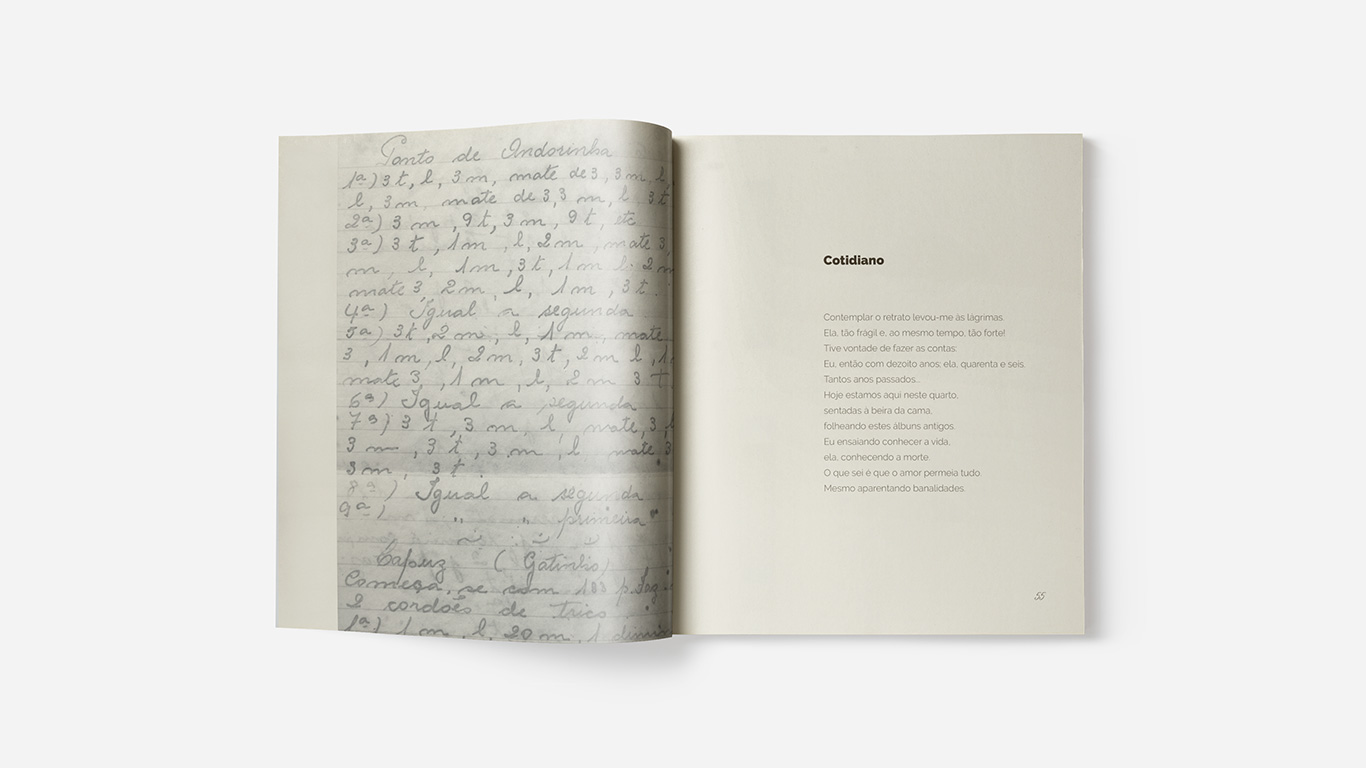 Ponto de Andorinha
1ª) 3 t, l, 3 m, mate de 3, 3 m, l,
l, 3 m, mate de 3, 3 m, l, 3 t
2ª) 3 m, 9 t, 3 m, 9 t, etc
3ª) 3 t, 1 m, l, 2 m, mate 3,
m, l, 1 m, 3 t, 1 m l, 2 m
mate 3, 2 m, l, 1 m, 3 t.
4ª) Igual a segunda
5ª) 3 t, 2 m, l, 1 m, mate
3, 1 m, l, 2 m, 3 t, 2 m l, 1
mate 3, 1 m, l, 2 m 3 t
6ª) Igual a segunda
7ª) 3 t, 3 m, l, mate, 3, l
3 m, 3 t, 3 m, l mate 3
3 m, 3 t.
8ª) Igual a segunda
9ª) " " primeira
Capuz (Gatinho)
Começa, se com
2 cordões de trico
1ª) 1 m, l, 20 m, 1
Cotidiano
Contemplar o retrato levou-me às lágrimas.
Ela, tão frágil e, ao mesmo tempo, tão forte!
Tive vontade de fazer as contas:
Eu, então com dezoito anos; ela, quarenta e seis.
Tantos anos passados...
Hoje estamos aqui neste quarto,
sentadas à beira da cama,
folheando estes álbuns antigos.
Eu ensaiando conhecer a vida,
ela, conhecendo a morte.
O que sei é que o amor permeia tudo.
Mesmo aparentando banalidades.
55